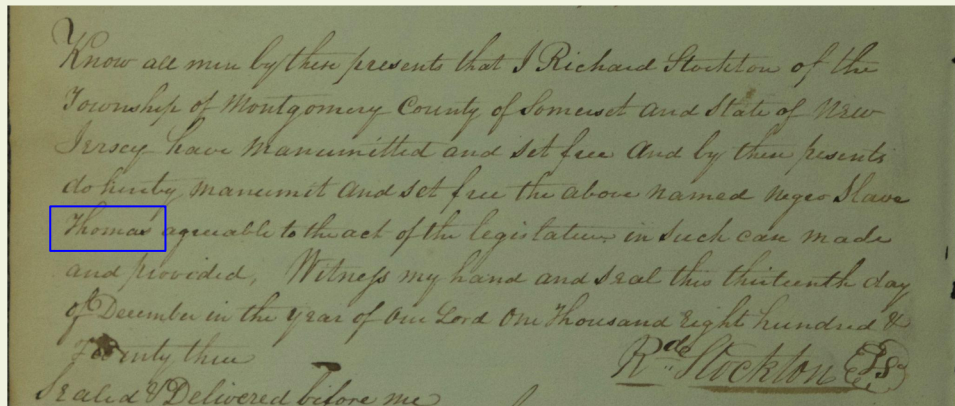 Know all men by these presents that I Richard Stockton of the
Township of Montgomery County of Somerset and State of New
Jersey have manumitted and set free and by these presents
do hereby manumit and set free the above named negro Slave
Thomas agreeable to the act of the legislature in such case made
and provided, Witness my hand and seal this thirteenth day
of December in the year of Our Lord One Thousand Eight hundred &
Twenty three
Rd. Stockton
Sealed & Delivered before me